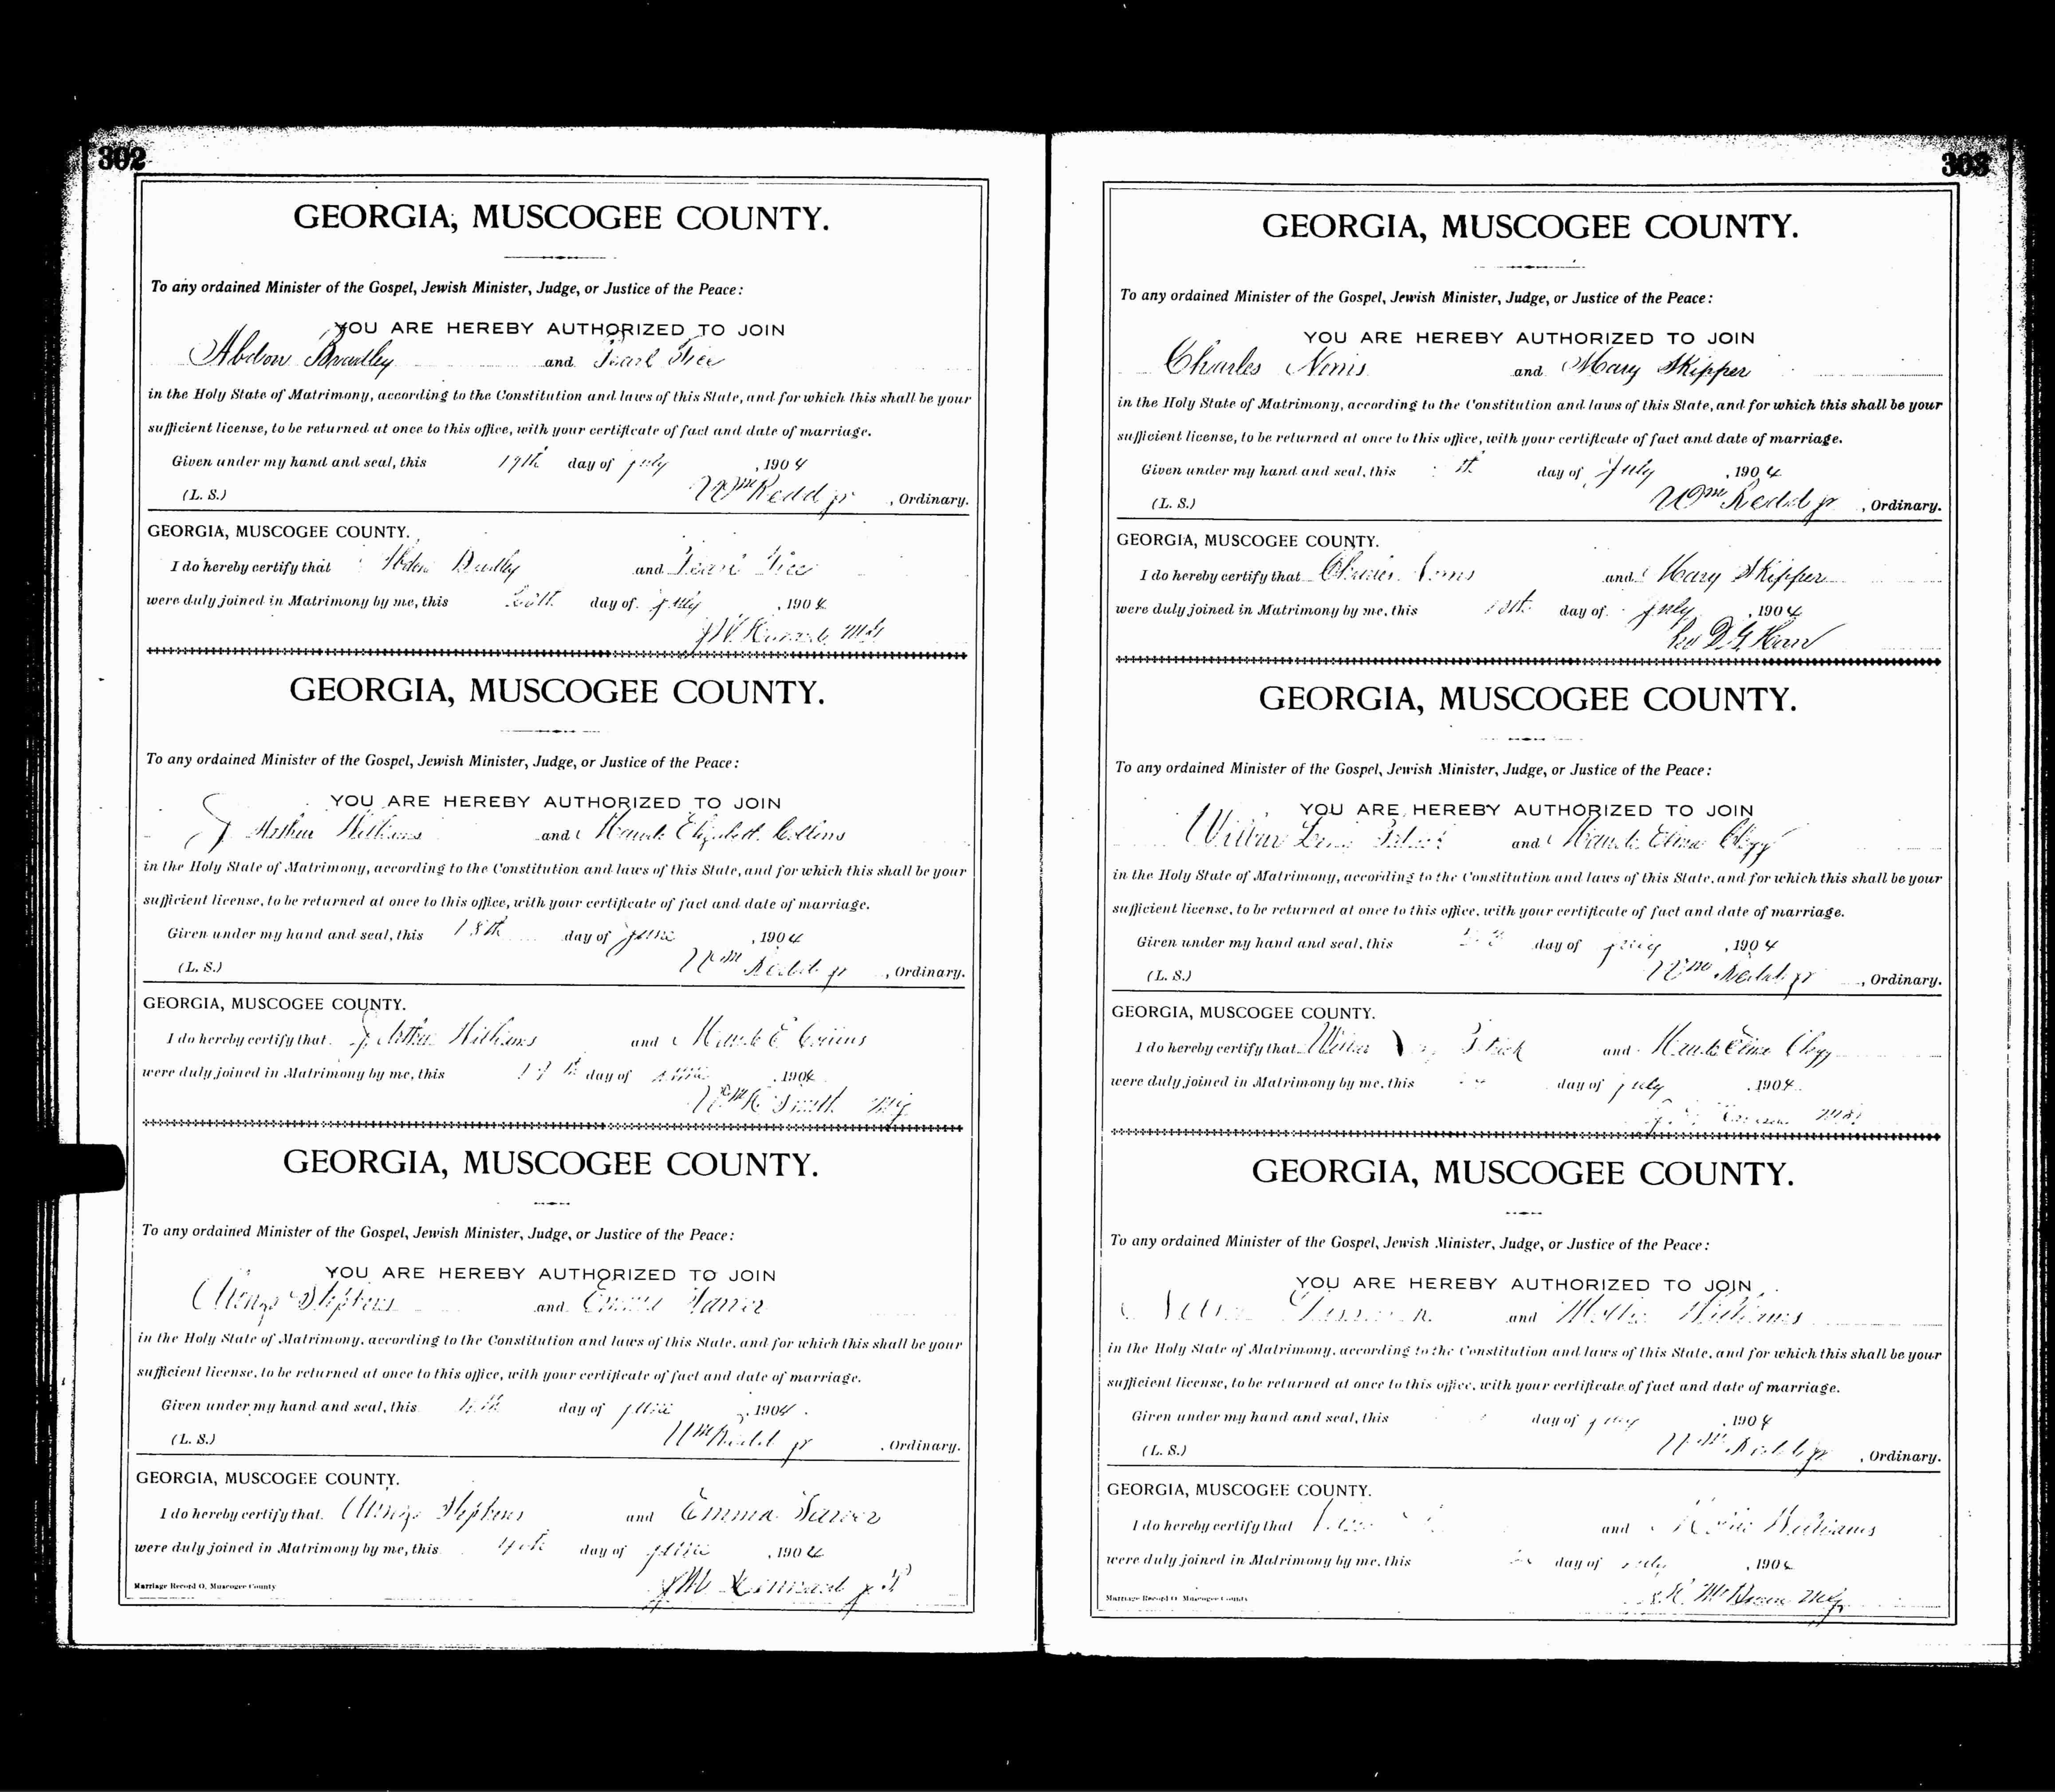 302
GEORGIA, MUSCOGEE COUNTY.
To any ordained Minister of the Gospel, Jewish Minister, Judge, or Justice of the Peace:
YOU ARE HEREBY AUTHORIZED TO JOIN
Abdon Bradley and Pearl
in the Holy State of Matrimony, according to the Constitution and laws of this State, and for which this shall be your
sufficient license, to be returned at once to this office, with your certificate of fact and date of marriage.
Given under my hand and seal, this 19th day of July, 1904
(L. S.) Wm Redd jr, Ordinary.
GEORGIA, MUSCOGEE COUNTY.
I do hereby certify that Abdon Bradley and Pearl
were duly joined in Matrimony by me, this day of July, 1904
GEORGIA, MUSCOGEE COUNTY.
To any ordained Minister of the Gospel, Jewish Minister, Judge, or Justice of the Peace:
YOU ARE HEREBY AUTHORIZED TO JOIN
J Arthur Williams and Maude Elizabeth Collins
in the Holy State of Matrimony, according to the Constitution and laws of this State, and for which this shall be your
sufficient license, to be returned at once to this office, with your certificate of fact and date of marriage.
Given under my hand and seal, this 18th day of June, 1904
(L. S.) Wm Redd jr, Ordinary.
GEORGIA, MUSCOGEE COUNTY.
I do hereby certify that J Arthur Williams and Maude E Collins
were duly joined in Matrimony by me, this day of June, 1904
Smith MG
GEORGIA, MUSCOGEE COUNTY.
To any ordained Minister of the Gospel, Jewish Minister, Judge, or Justice of the Peace:
YOU ARE HEREBY AUTHORIZED TO JOIN
Alonzo Stephens and Emma
in the Holy State of Matrimony, according to the Constitution and laws of this State, and for which this shall be your
sufficient license, to be returned at once to this office, with your certificate of fact and date of marriage.
Given under my hand and seal, this day of June, 1904
(L. S.) Wm Redd jr, Ordinary.
GEORGIA, MUSCOGEE COUNTY.
I do hereby certify that Alonzo Stephens and Emma
were duly joined in Matrimony by me, this 4th day of June, 1904
Marriage Record O, Muscogee County
303
GEORGIA, MUSCOGEE COUNTY.
To any ordained Minister of the Gospel, Jewish Minister, Judge, or Justice of the Peace:
YOU ARE HEREBY AUTHORIZED TO JOIN
Charles and Mary Skipper
in the Holy State of Matrimony, according to the Constitution and laws of this State, and for which this shall be your
sufficient license, to be returned at once to this office, with your certificate of fact and date of marriage.
Given under my hand and seal, this day of July, 1904
(L. S.) Wm Redd jr, Ordinary.
GEORGIA, MUSCOGEE COUNTY.
I do hereby certify that Charles and Mary Skipper
were duly joined in Matrimony by me, this day of July, 1904
GEORGIA, MUSCOGEE COUNTY.
To any ordained Minister of the Gospel, Jewish Minister, Judge, or Justice of the Peace:
YOU ARE HEREBY AUTHORIZED TO JOIN
Wilbur and Maude Clegg
in the Holy State of Matrimony, according to the Constitution and laws of this State, and for which this shall be your
sufficient license, to be returned at once to this office, with your certificate of fact and date of marriage.
Given under my hand and seal, this day of July, 1904
(L. S.) Wm Redd jr, Ordinary.
GEORGIA, MUSCOGEE COUNTY.
I do hereby certify that Wilbur and Maude Clegg
were duly joined in Matrimony by me, this day of July, 1904
GEORGIA, MUSCOGEE COUNTY.
To any ordained Minister of the Gospel, Jewish Minister, Judge, or Justice of the Peace:
YOU ARE HEREBY AUTHORIZED TO JOIN
and Mollie Williams
in the Holy State of Matrimony, according to the Constitution and laws of this State, and for which this shall be your
sufficient license, to be returned at once to this office, with your certificate of fact and date of marriage.
Given under my hand and seal, this day of July, 1904
(L. S.) Wm Redd jr, Ordinary.
GEORGIA, MUSCOGEE COUNTY.
I do hereby certify that and Williams
were duly joined in Matrimony by me, this day of July, 1904
Marriage Record O, Muscogee County